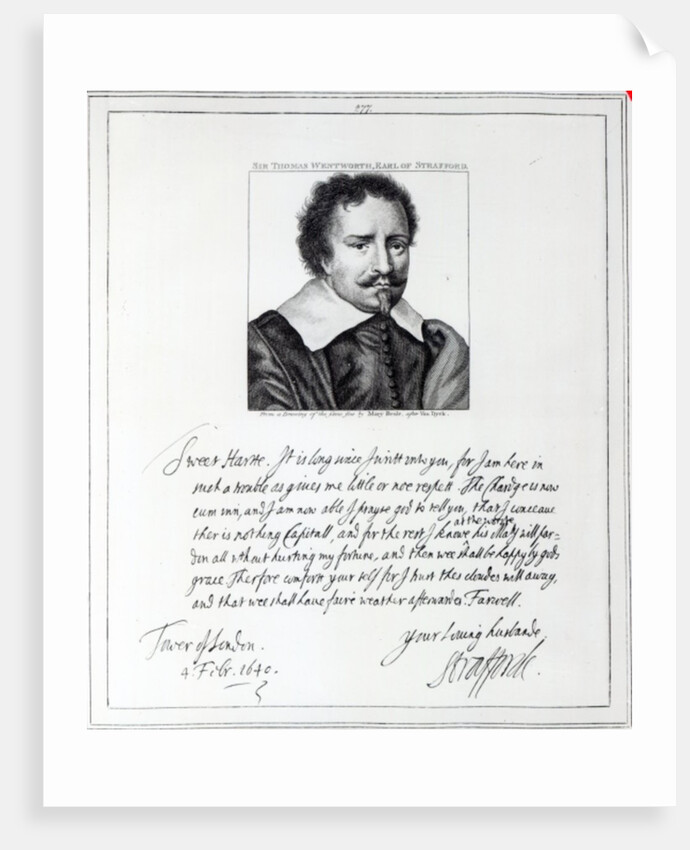 877.
SIR THOMAS WENTWORTH, EARL OF STRAFFORD.
From a Drawing of the same size by Mary Beale, after Van Dyck.
Sweet Harte. It is long since I writt unto you, for I am here in
such a trouble as gives me little or noe respett. The Chardge is now
cum inn, and I am now able I prayse god to tell you, that I conceaue
ther is nothing Capitall, and for the rest I knowe
at the worste
his Maty will par=
don all without hurting my fortune, and then wee shall be happy by gods
grace. Therfore comfort your self for I trust thes cloudes will away,
and that wee shall haue faire weather afterwardes. Farwell.
Your louing husbande
Tower of London.
4. Febr. 1640.
Strafforde.